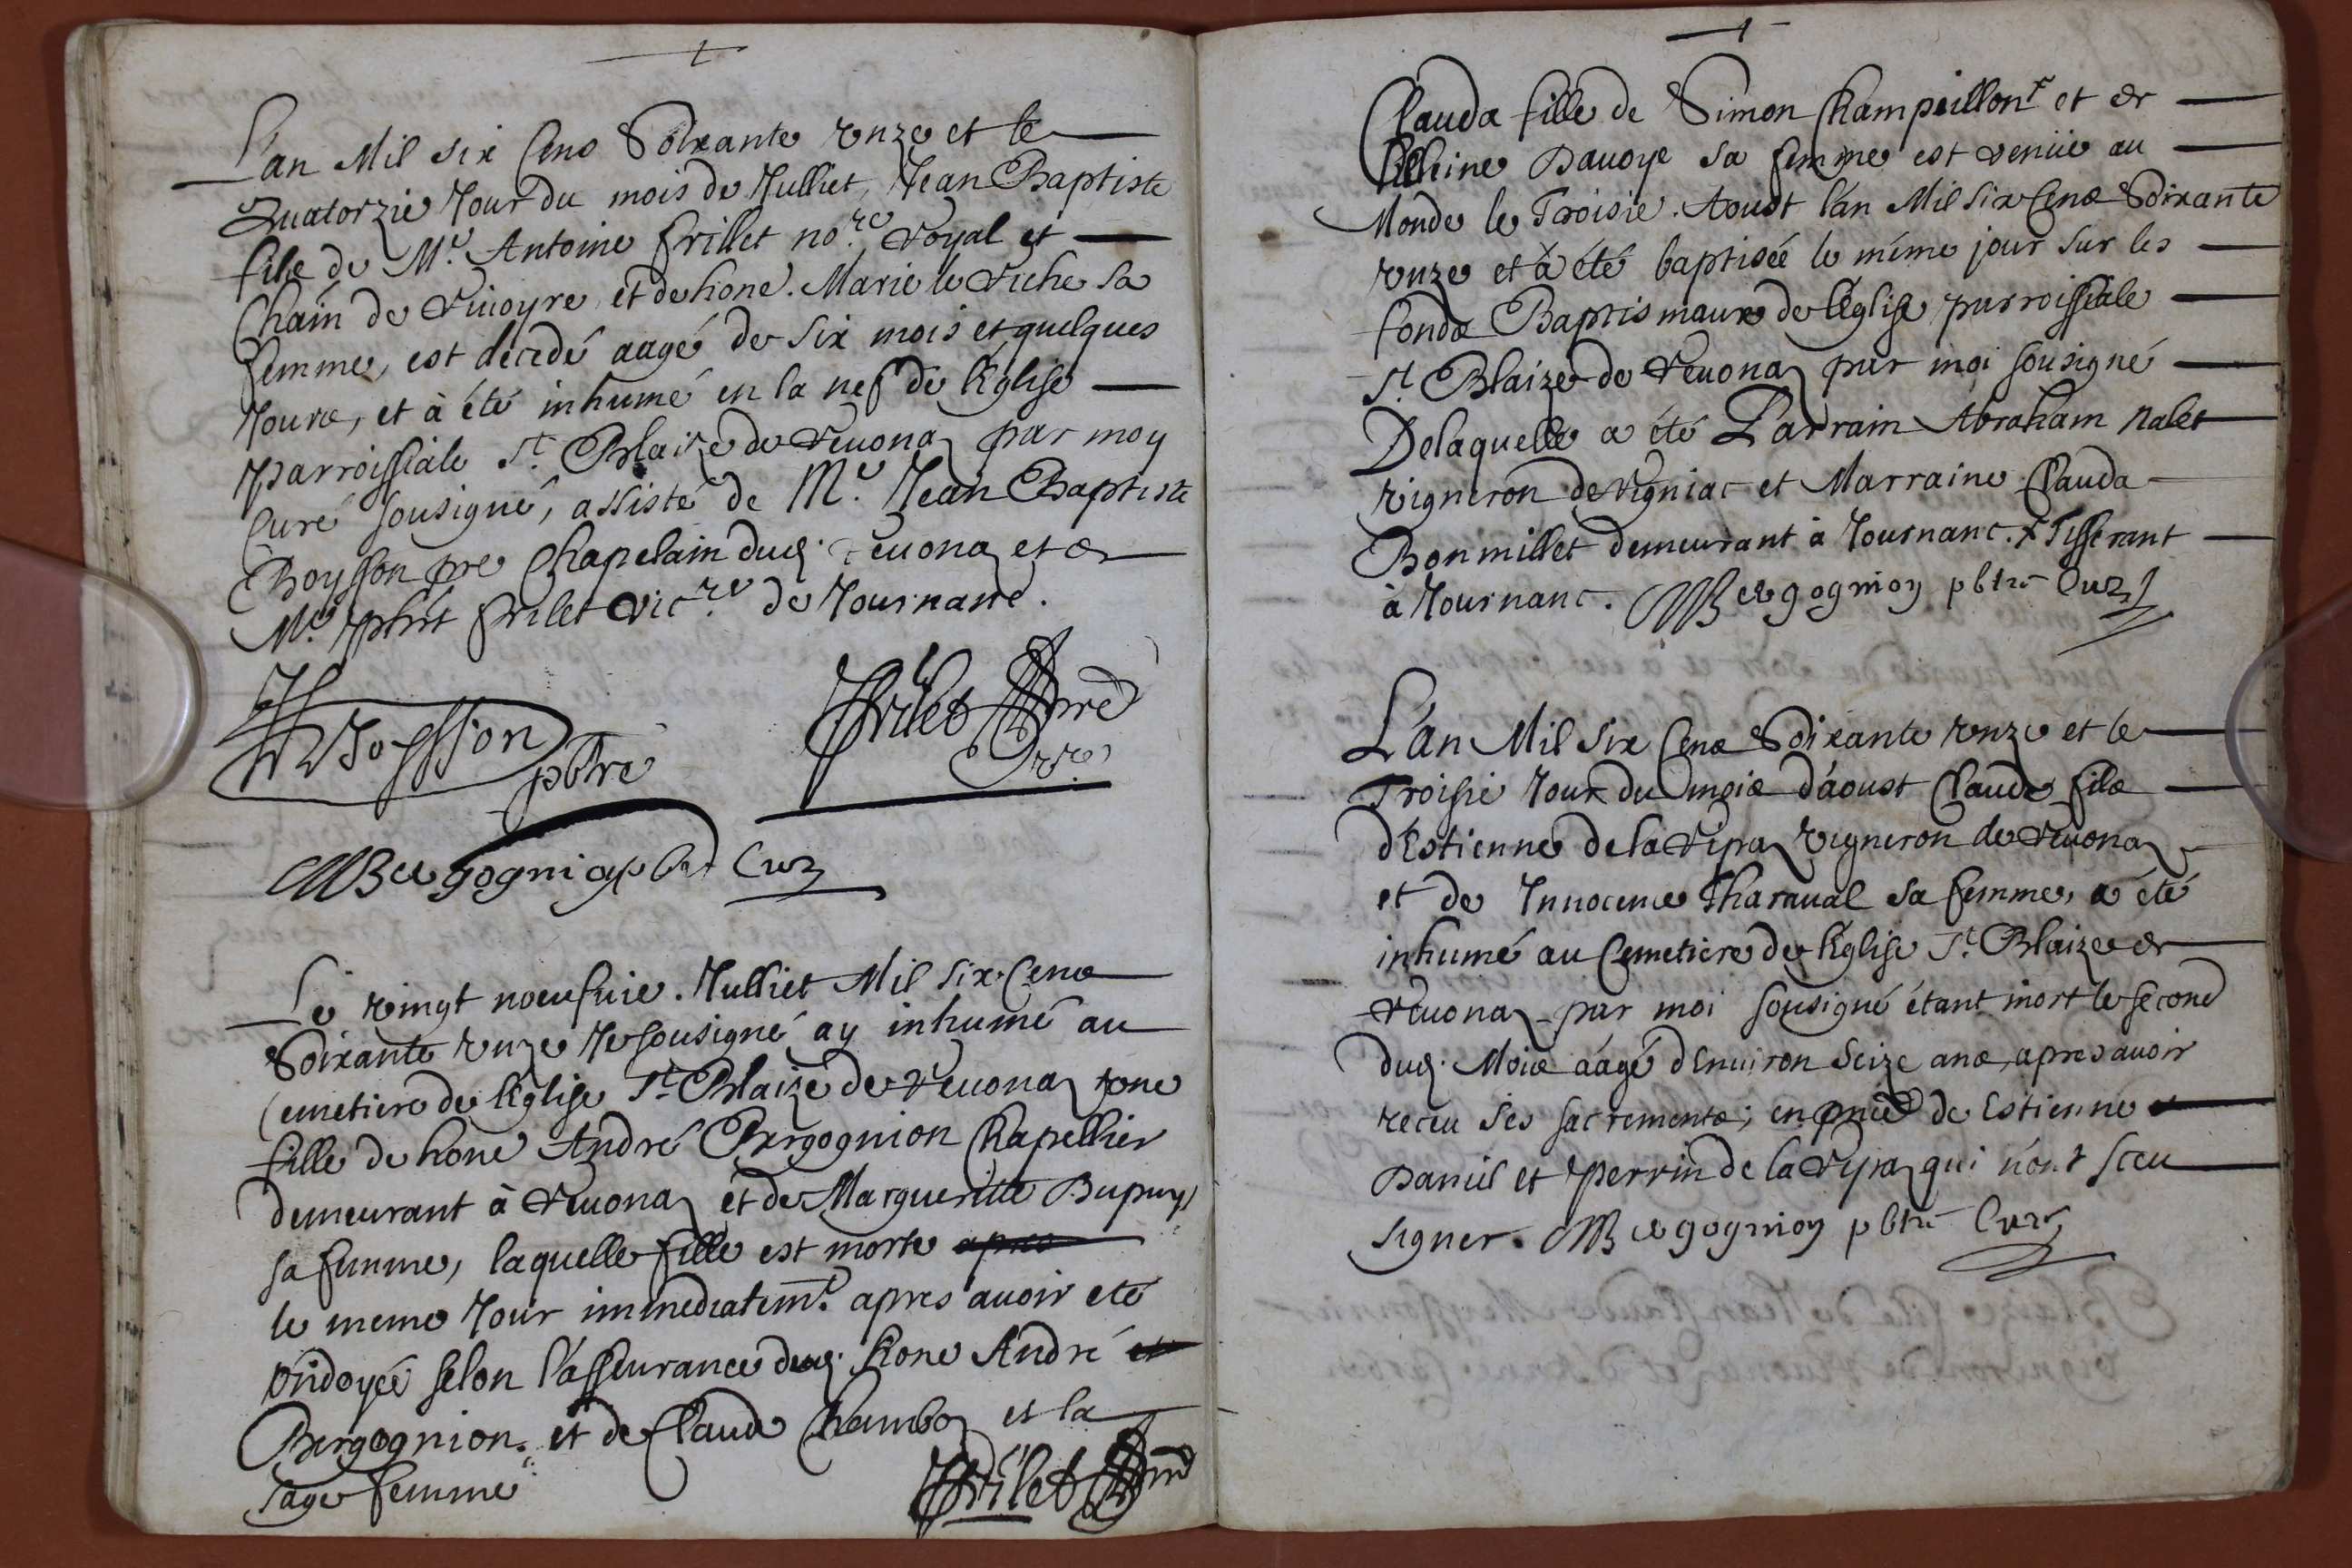 L'an Mil six Cens Soixante vnze et le
Quatorzie Jour du mois de Julliet, Jean Baptiste
fils de Me. Antoine frillet nore. Royal et
Chain de et de hone. Marie le Riche sa
femme, est décédé aagé de six mois et quelques
Jours, et à été inhumé en la nef de l'église
parroissiale St. Blaize de Reuonaz par moy
Curé sousigné, assisté de Me. Jean Baptiste
Boysson pre Chapelain dud. Reuonaz et de
Me. frilet vicre. de Journans.
Boysson pbtre
frilet
M Bergognion pbtre Curé
Le vingt noeufuie. Julliet Mil six Cens
Soixante vnze Je sousigné ay inhumé au
Cemetiere de l'église St. Blaize de Reuonaz vne
fille de hone André Bergognion Chapellier
demeurant à Reuonaz et de Marguerite Dupuy
sa femme, laquelle fille est morte apres
le meme Jour immediatemt. apres auoir eté
ondoyée selon l'asseurance dud. hone André et
Bergognion. et de Claude Chamboz et la
sage femme
frilet
Clauda fille de Simon Champeillon x et de
Dauoye sa femme est venüe au
Monde le Troisie. Aoust l'an Mil six Cens Soixante
vnze et à été baptisée le même jour sur les
fonds Baptismaux de l'église parroissiale
St. Blaize de Reuonaz par moi sousigné
Delaquelle a été Parrain Abraham Nalet
vigneron de Rigniac et Marraine Clauda
Bonmillet demeurant à Journanc. x Tisserant
à Journanc. M Bergognion pbtre Curé
L'an Mil six Cens Soixante vnze et le
Troisie Jour du mois d'aoust Claude fils
d'Estienne de la Ripaz vigneron de Reuonaz
et de Innocence Tharaual sa femme, a été
inhumé au Cemetiere de l'église St. Blaize de
Reuonaz par moi sousigné étant mort le second
dud. Mois aàgé d'Enuiron seize ans, apres auoir
receu ses sacrements; en pnce de Estienne et
Daniel et Perrin de la Ripaz qui n'ont sceu
signer. M Bergognion pbtre Curé